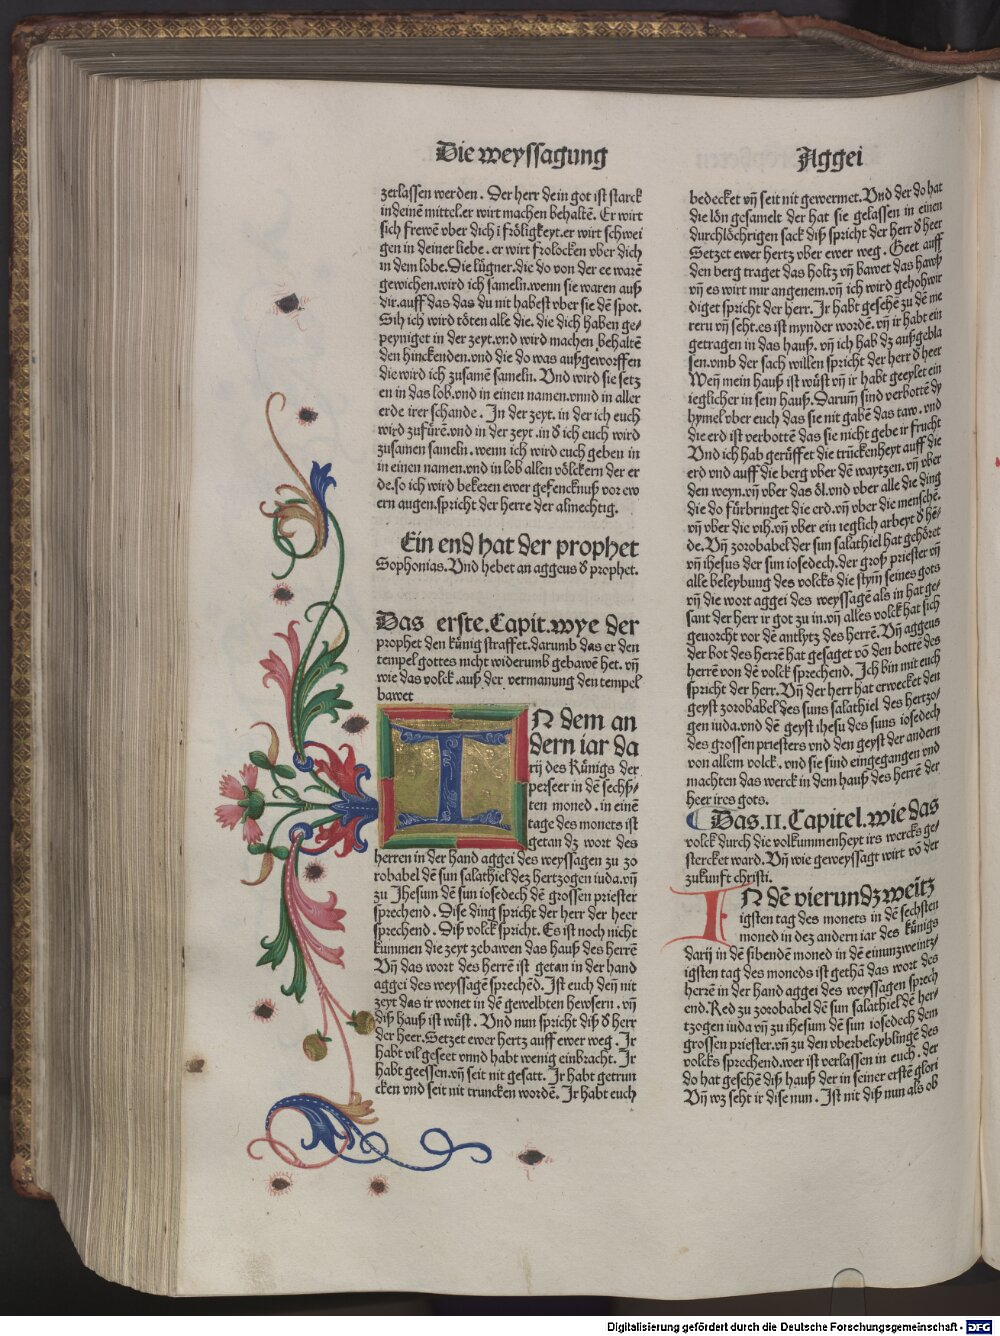 Die weyssagung
Aggei
zerlassen werden. Der herr dein got ist starck
in deinē mittel.er wirt machen behaltē. Er wirt
sich frewē vber dich i frőligkeyt.er wirt schwei
gen in deiner liebe. er wirt frolocken vber dich
in dem lobe. Die lügner.die do von der ee warē
gewichen.wird ich sameln.wenn sie waren auß
dir.auff das das du nit habest vber sie dē spot.
Sih ich wird tőten alle die. die dich haben ge-
peyniget in der zeyt.vnd wird machen behaltē
den hinckenden.vnd die do was außgeworffen
die wird ich zusamē sameln. Vnd wird sie setz
en in das lob.vnd in einen namen.vnnd in aller
erde irer schande. In der zeyt. in der ich euch
wird zufürē.vnd in der zeyt.in d̕ ich euch wird
zusamen sameln. wenn ich wird euch geben in
in einen namen.vnd in lob allen vőlckern der er
de.so ich wird bekeren ewer gefencknuß vor ew
ern augen.spricht der herre der almechtig.
Ein end hat der prophet
Sophonias. Vnd hebet an aggeus d̕ prophet.
Das erste. Capit. wye der
prophet den künig straffet.darumb das er den
tempel gottes nicht widerumb gebawen het. vñ
wie das volck .auß der vermanung den tempel
bawet
IN dem an
dern iar da
rij des Künigs der
perseer in dē sechß-
ten moned . in einē
tage des monets ist
getan dz wort des
herren in der hand aggei des weyssagen zu zo
robabel dē sun salathiel dez hertzogen iuda.vñ
zu Jhesum dē sun iosedech dē grossen priester
sprechend . Dise ding spricht der herr der heer
sprechend. Diß volck spricht. Es ist noch nicht
kummen die zeyt zebawen das hauß des herrē
Vñ das wort des herrē ist getan in der hand
aggei des weyssagē sprechēd. Ist euch deñ nit
zeyt das ir wonet in dē gewelbten hewsern. vñ
diß hauß ist wüst. Vnd nun spricht diß d̕ herr
der heer. Setzet ewer hertz auff ewer weg. Jr
habt vil geseet vnnd habt wenig einbracht. Jr
habt geessen.vñ seit nit gesatt. Jr habt getrun
cken vnd seit nit truncken wordē. Jr habt euch
bedecket vñ seit nit gewermet. Vnd der do hat
die lőn gesamelt der hat sie gelassen in einen
durchlőchrigen sack diß spricht der herr d̕ heer
Setzet ewer hertz vber ewer weg . Geet auff
den berg traget das holtz vñ bawet das hawß
vñ es wirt mir angenem.vñ ich wird gehohwir
diget spricht der herr. Jr habt gesehē zu dē me
reru vñ seht.es ist mynder wordē. vñ ir habt ein
getragen in das hauß. vñ ich hab dz außgebla
sen.vmb der sach willen spricht der herr d̕ heer
Weñ mein hauß ist wüst vñ ir habt geeylet ein
ieglicher in sein hauß. Darum̄ sind verbottē dy
hymel vber euch das sie nit gabē das taw. vnd
die erd ist verbottē das sie nicht gebe ir frucht
Vnd ich hab gerüffet die trückenheyt auff die
erd vnd auff die berg vber dē waytzen. vñ vber
den weyn.vñ vber das ől.vnd vber alle die ding
die do fürbringet die erd.vñ vber die menschē.
vñ vber die vih.vñ vber ein ieglich arbeyt d̕ hē-
de. Vñ zorobabel der sun salathiel hat gehőret
vñ ihesus der sun iosedech.der groß priester vñ
alle beleybung des volcks die stym̄ seines gots
vñ die wort aggei des weyssagē als in hat ge-
sant der herr ir got zu in.vñ alles volck hat sich
geuorcht vor dē antlytz des herrē. Vñ aggeus
der bot des herrē hat gesaget vō den bottē des
herrē von dē volck sprechend. Ich bin mit euch
spricht der herr. Vñ der herr hat erwecket den
geyst zorobabel des suns salathiel des hertzo-
gen iuda.vnd dē geyst ihesu des suns iosedech
des grossen priesters vnd den geyst der andern
von allem volck . vnd sie sind eingegangen vnd
machten das werck in dem hauß des herrē der
heer ires gots.
Das. II. Capitel. wie das
volck durch die volkummenheyt irs wercks ge-
stercket ward. Vñ wie geweyssagt wirt vō der
zukunft christi.
IN dē vierundzweītz
igsten tag des monets in dē sechsten
moned in dez andern iar des künigs
darij in dē sibendē moned in dē einunzweintz-
igsten tag des moneds ist gethā das wort des
herrē in der hand aggei des weyssagen sprech
end. Red zu zorobabel dē sun salathiel dē her-
tzogen iuda vñ zu ihesum dē sun iosedech dem
grossen priester.vñ zu den vberbeleyblingē des
volcks sprechend.wer ist verlassen in euch . der
do hat gesehē diß hauß der in seiner erstē glori
Vñ wz seht ir dise nun . Ist nit diß nun als ob
Digitalisierung gefördert durch die Deutsche Forschungsgemeinschaft - DFG